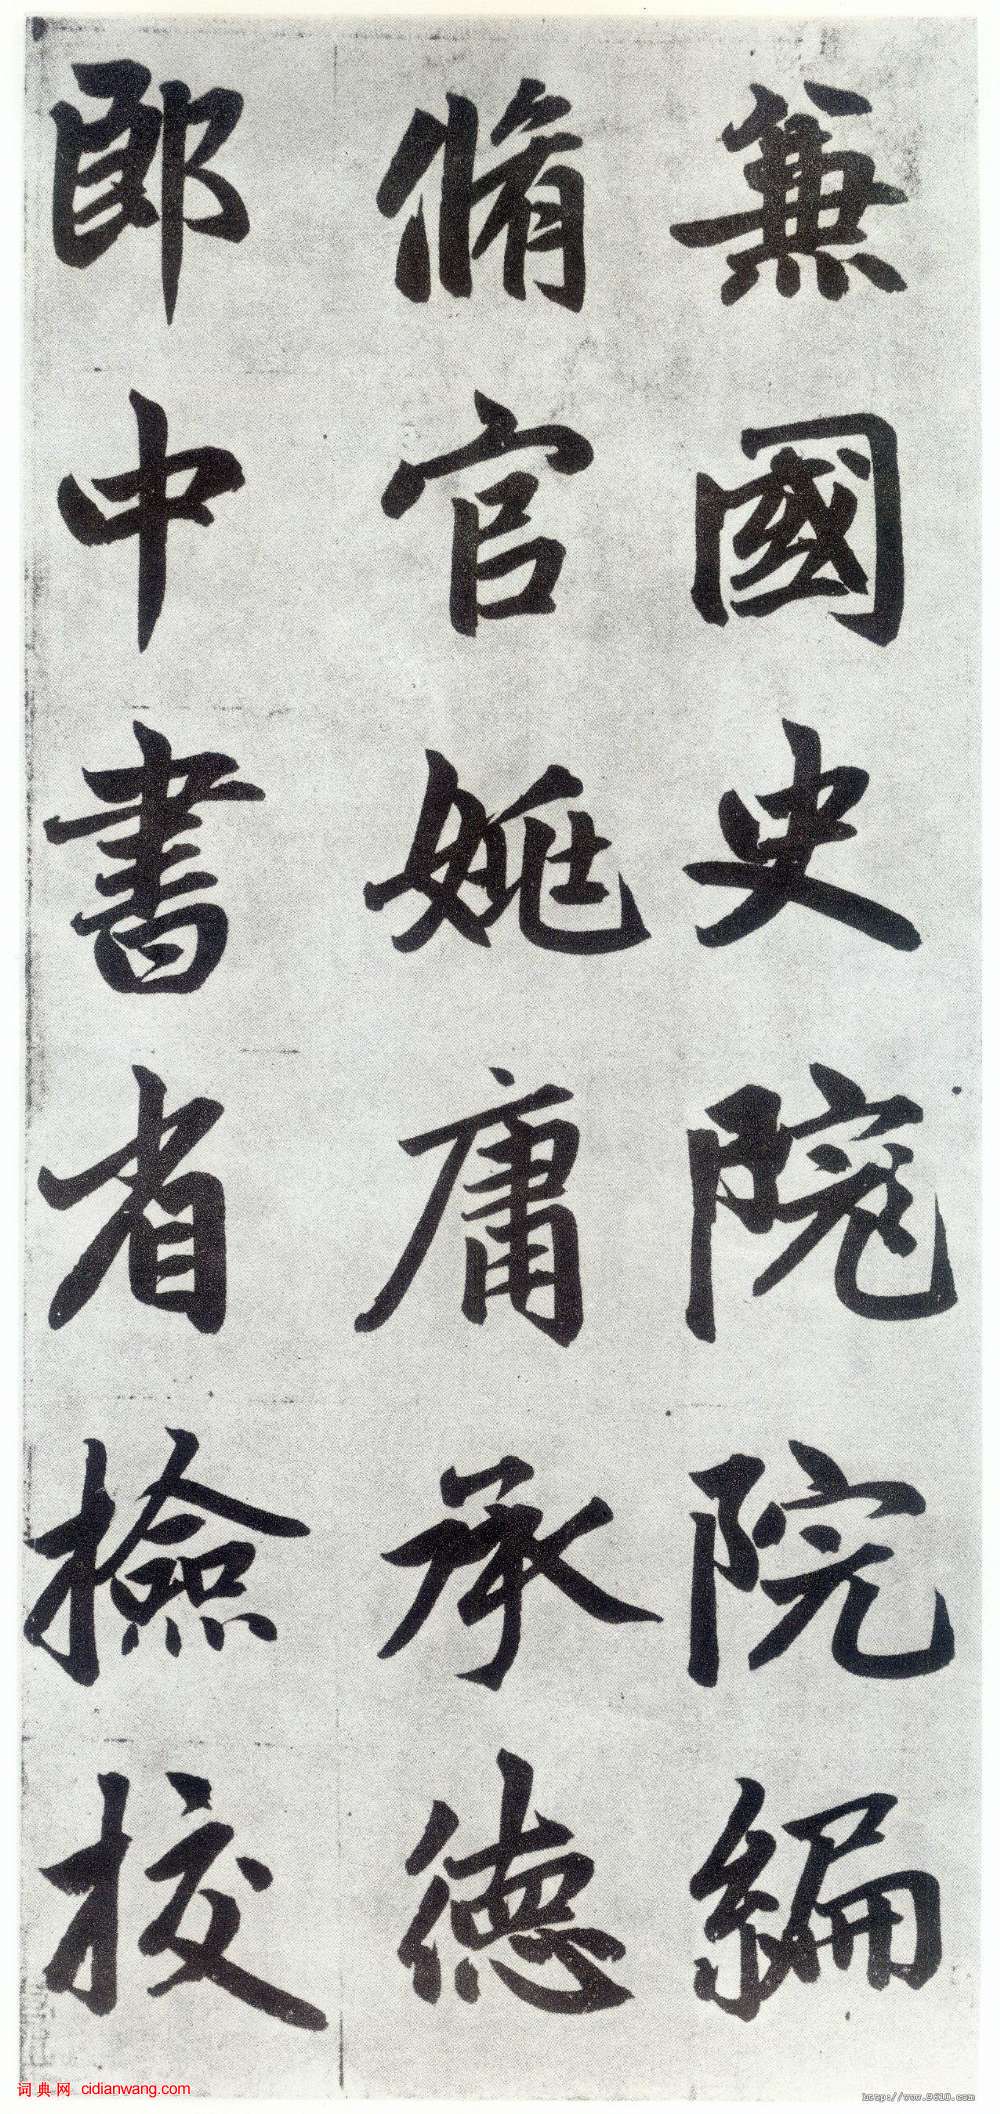 兼國史院院編
脩官姚庸承德
郎中書省撿挍
词典网 cidianwang.com
http://www.9610.com